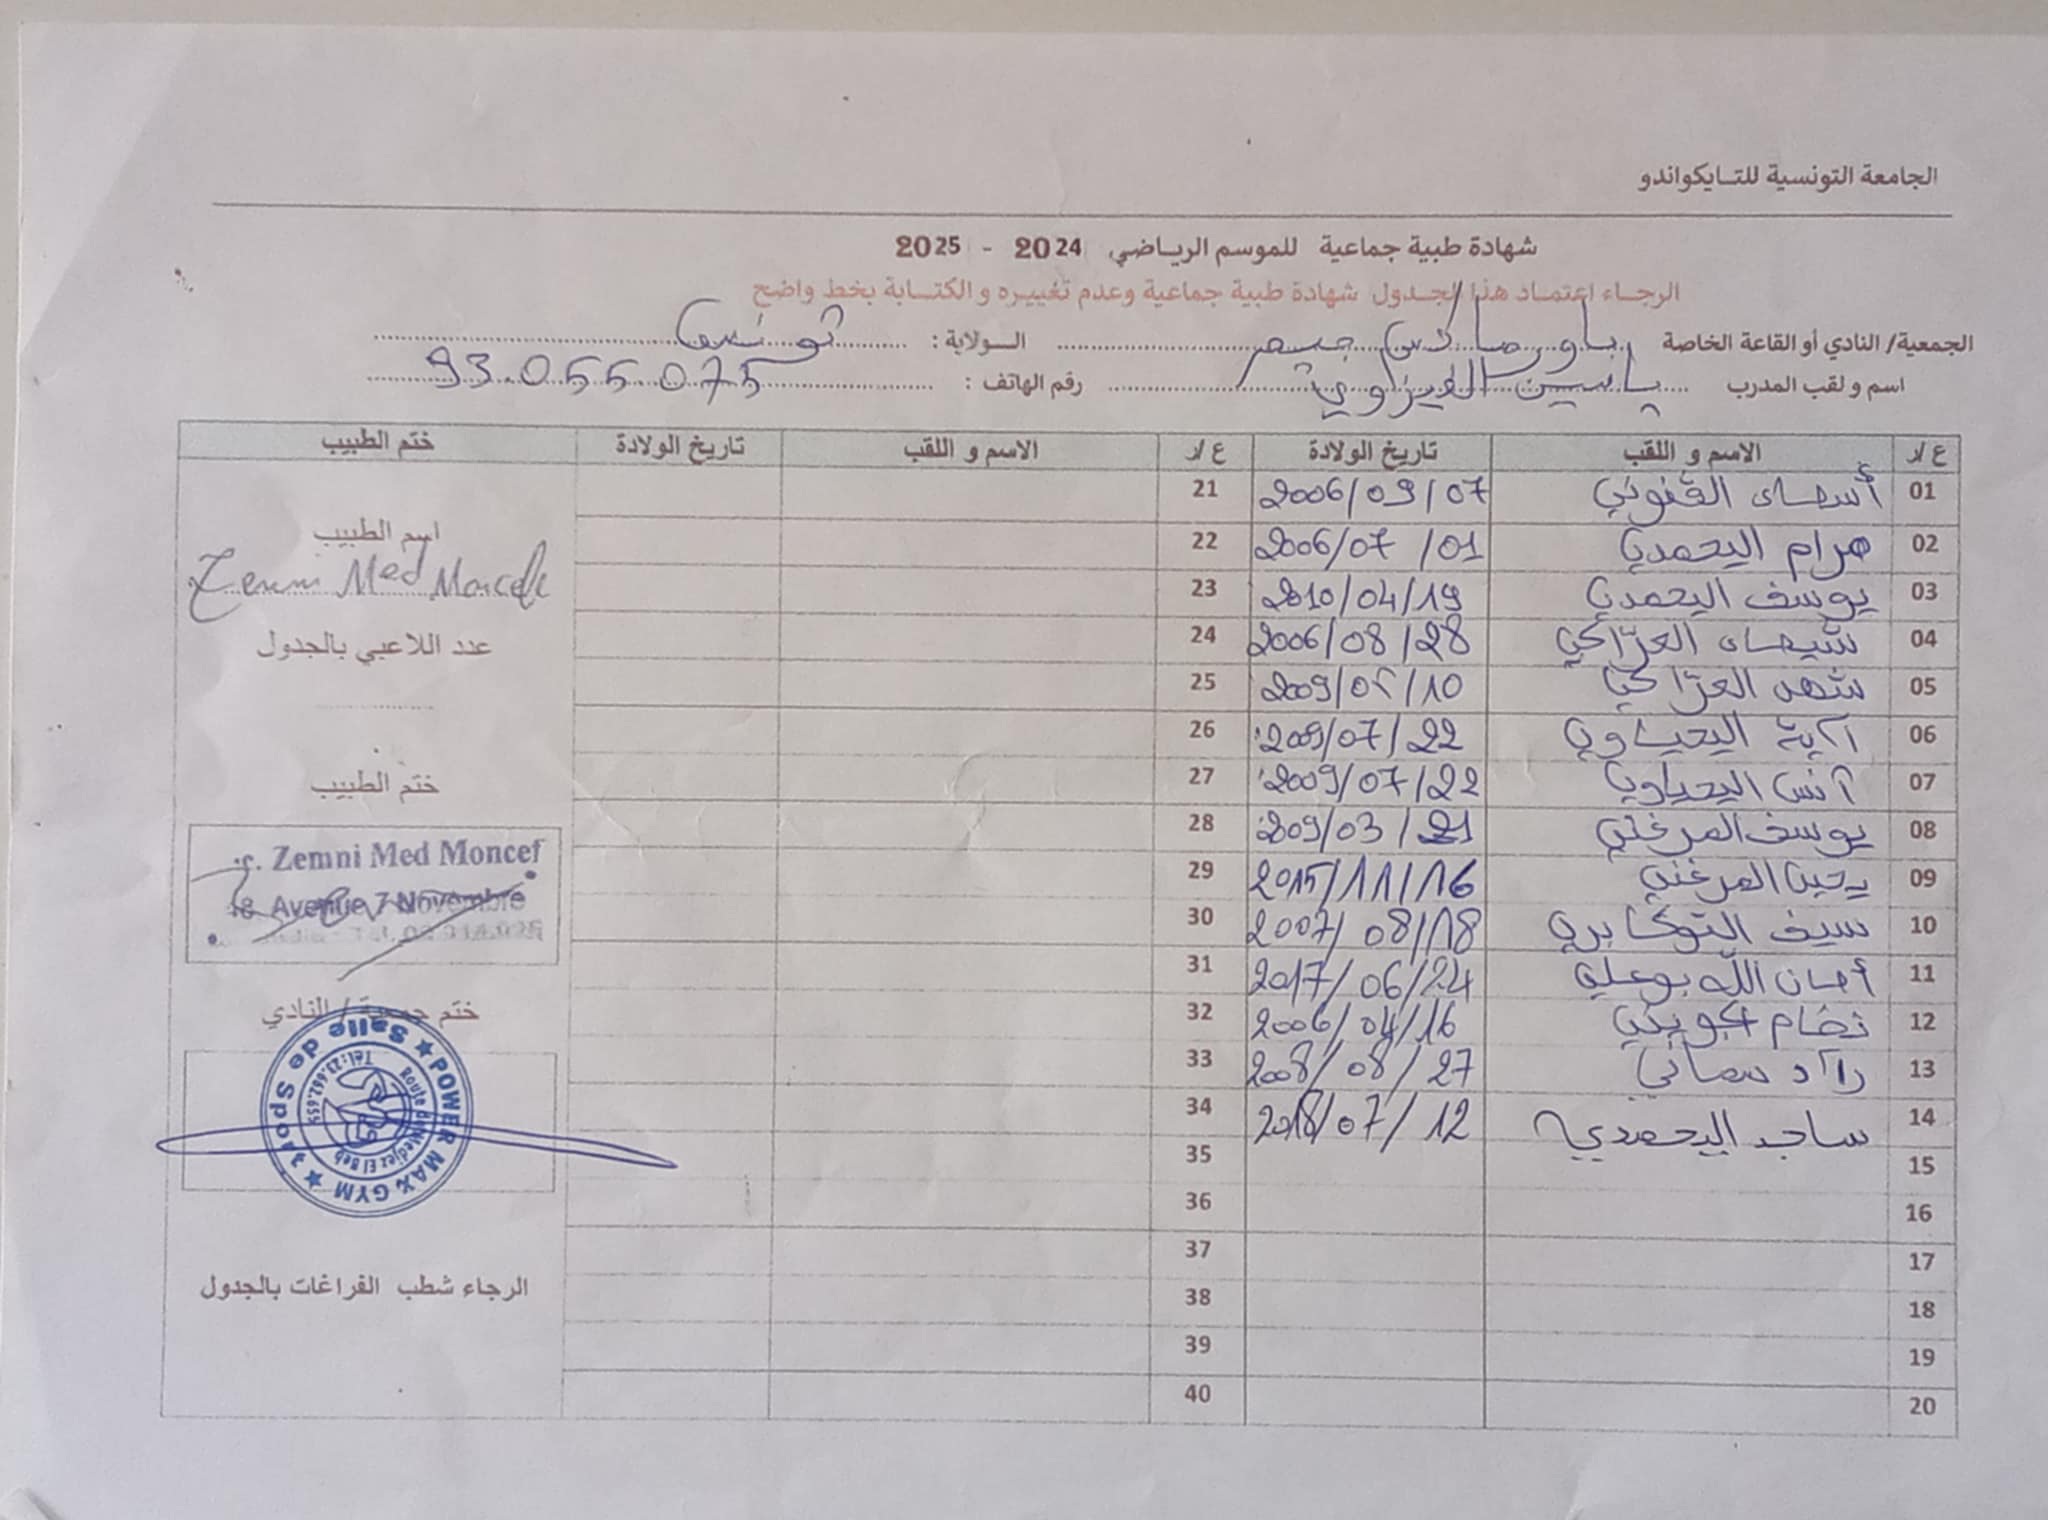 الجامعة التونسية للتـايكواندو
شهادة طبية جماعية للموسم الرياضي 2024 - 2025
الرجاء اعتماد هذا الجدول شهادة طبية جماعية وعدم تغييره و الكتابة بخط واضح
الجمعية/ النادي أو القاعة الخاصة باور ماكس جيم الـولاية : تونس
اسم و لقب المدرب ياسين العيزاوي رقم الهاتف : 93.055.075
ع/ر الاسم و اللقب تاريخ الولادة ع/ر الاسم و اللقب تاريخ الولادة ختم الطبيب
01 أسماء القنوني 2006/09/07 21
02 مرام اليحمدي 2006/07/01 22
03 يوسف اليحمدي 2010/04/19 23
04 شيماء العزابي 2006/08/28 24
05 شهد العزابي 10 25
06 آية اليحياوي 2009/07/22 26
07 آنس اليحياوي 2009/07/22 27
08 يوسف المرغني 209/03/21 28
09 يحيى المرغني 2015/11/16 29
10 سيف التوكابري 2007/08/18 30
11 أمان الله بوعلي 2017/06/24 31
12 2006/04/16 32
13 2008/08/27 33
14 ساجد اليحمدي 2018/07/12 34
15 35
16 36
17 37
18 38
19 39
20 40
اسم الطبيب
Zemni Med Moncef
عدد اللاعبي بالجدول
ختم الطبيب
Zemni Med Moncef
18 Avenue 7 Novembre
ختم جمعية / النادي
POWER MAX GYM ★ Salle de Sport ★
Route de Medjez El Beb
Tél: 23.662.655
الرجاء شطب الفراغات بالجدول